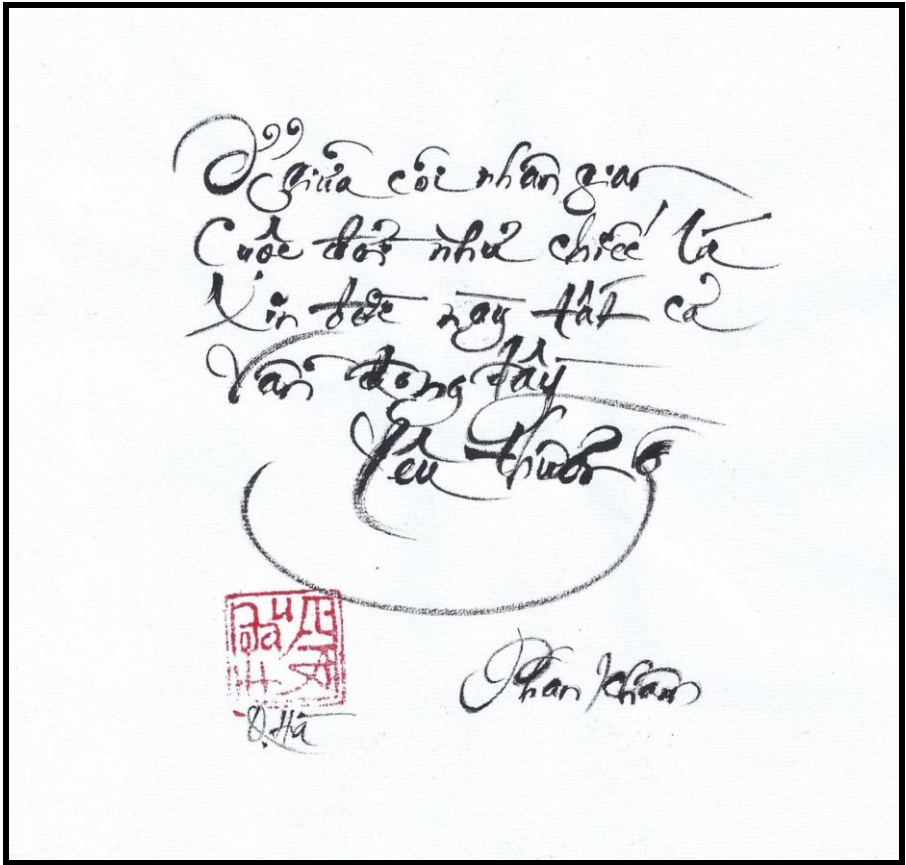 Ở giữa cõi nhân gian
Cuộc đời như chiếc lá
Xin đời này tất cả
Vẫn đong đầy
Yêu thương
Phan Khâm
Đ. Hà